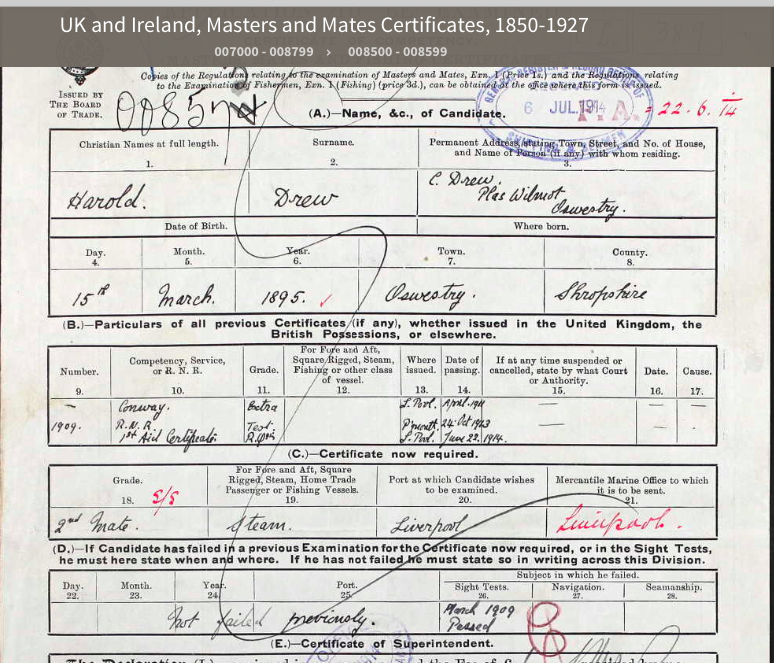 UK and Ireland, Masters and Mates Certificates, 1850-1927
007000 - 008799 › 008500 - 008599
Copies of the Regulations relating to the examination of Masters and Mates, Exn. 1 (Price 1s.) and the Regulations, relating
to the Examination of Fishermen, Exn. 1 (Fishing) (price 3d.), can be obtained at the office where this form is issued.
ISSUED BY
THE BOARD
OF TRADE.
6 JUL 1914
22.6.14
(A.)—Name, &c., of Candidate.
Christian Names at full length.
1.
Surname.
2.
Permanent Address, stating Town, Street, and No. of House,
and Name of Person (if any) with whom residing.
3.
Harold.
Drew
C. Drew.
Plas Wilmot
Oswestry.
Date of Birth.
Where born.
Day.
4.
Month.
5.
Year.
6.
Town.
7.
County.
8.
15th
March.
1895.
Oswestry.
Shropshire
(B.)—Particulars of all previous Certificates (if any), whether issued in the United Kingdom, the
British Possessions, or elsewhere.
Number.
9.
Competency, Service,
or R. N. R.
10.
Grade.
11.
For Fore and Aft,
Square Rigged, Steam,
Fishing or other class
of vessel.
12.
Where
issued.
13.
Date of
passing.
14.
If at any time suspended or
cancelled, state by what Court
or Authority.
15.
Date.
16.
Cause.
17.
— Conway. Extra L'Pool. April 1911 — — —
1909. R.N.R. P'mouth 24 Oct 1913 — —
1st Aid Certificate L'Pool. June 22. 1914.
(C.)—Certificate now required.
Grade.
18.
S/S
For Fore and Aft, Square
Rigged, Steam, Home Trade
Passenger or Fishing Vessels.
19.
Port at which Candidate wishes
to be examined.
20.
Mercantile Marine Office to which
it is to be sent.
21.
2nd Mate.
Steam.
Liverpool
Liverpool.
(D.)—If Candidate has failed in a previous Examination for the Certificate now required, or in the Sight Tests,
he must here state when and where. If he has not failed he must state so in writing across this Division.
Day.
22.
Month.
23.
Year.
24.
Port.
25.
Subject in which he failed.
Sight Tests.
26.
Navigation.
27.
Seamanship.
28.
Not failed previously.
March 1909
Passed
(E.)—Certificate of Superintendent.